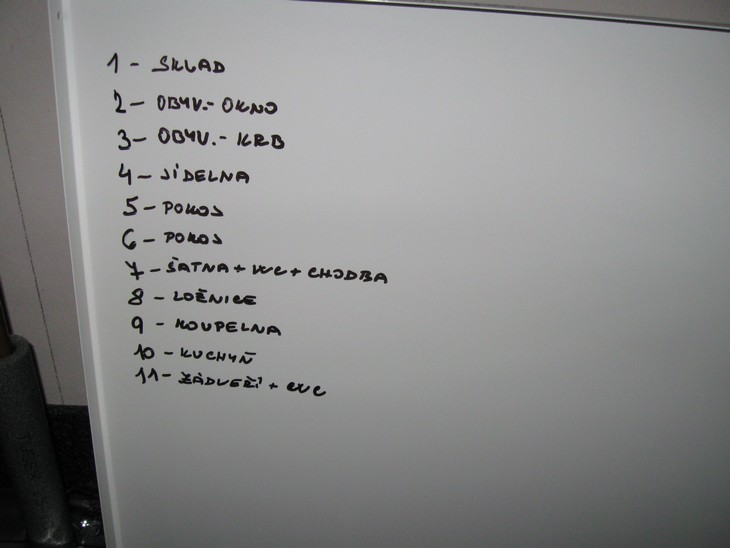 1 - SKLAD
2 - OBYV.- OKNO
3 - OBYV.- KRB
4 - JÍDELNA
5 - POKOJ
6 - POKOJ
7 - ŠATNA + WC + CHODBA
8 - LOŽNICE
9 - KOUPELNA
10 - KUCHYŇ
11 - ZÁDVEŘÍ + WC